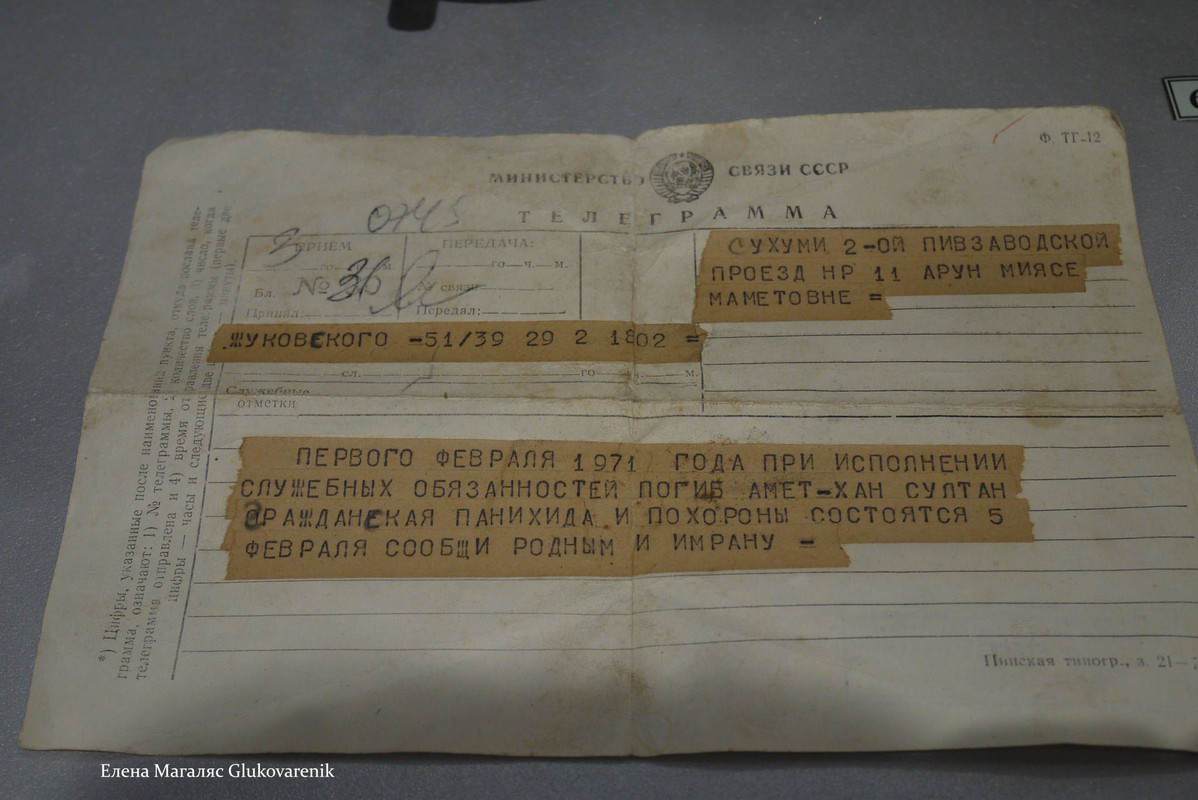 Ф. ТГ-12
МИНИСТЕРСТВО СВЯЗИ СССР
ТЕЛЕГРАММА
0745
ПРИЕМ
ПЕРЕДАЧА:
го м.
го—ч.—м.
Бл. № 36
№ связи
Принял:
Передал:
СУХУМИ 2-ОЙ ПИВЗАВОДСКОЙ
ПРОЕЗД НР 11 АРУН МИЯСЕ
МАМЕТОВНЕ =
ЖУКОВСКОГО -51/39 29 2 1802 =
сл. го м.
Служебные
отметки
ПЕРВОГО ФЕВРАЛЯ 1971 ГОДА ПРИ ИСПОЛНЕНИИ
СЛУЖЕБНЫХ ОБЯЗАННОСТЕЙ ПОГИБ АМЕТ-ХАН СУЛТАН
ГРАЖДАНСКАЯ ПАНИХИДА И ПОХОРОНЫ СОСТОЯТСЯ 5
ФЕВРАЛЯ СООБЩИ РОДНЫМ И ИМРАНУ =
*) Цифры, указанные после наименования пункта, откуда послана теле-
грамма, означают: 1) № телеграммы, 2 количество слов, 3) число, когда
телеграмма отправлена и 4) время отправления телеграммы (первые две
цифры — часы и следующие две минуты).
Пинская типогр., з. 21—7
Елена Магаляс Glukovarenik